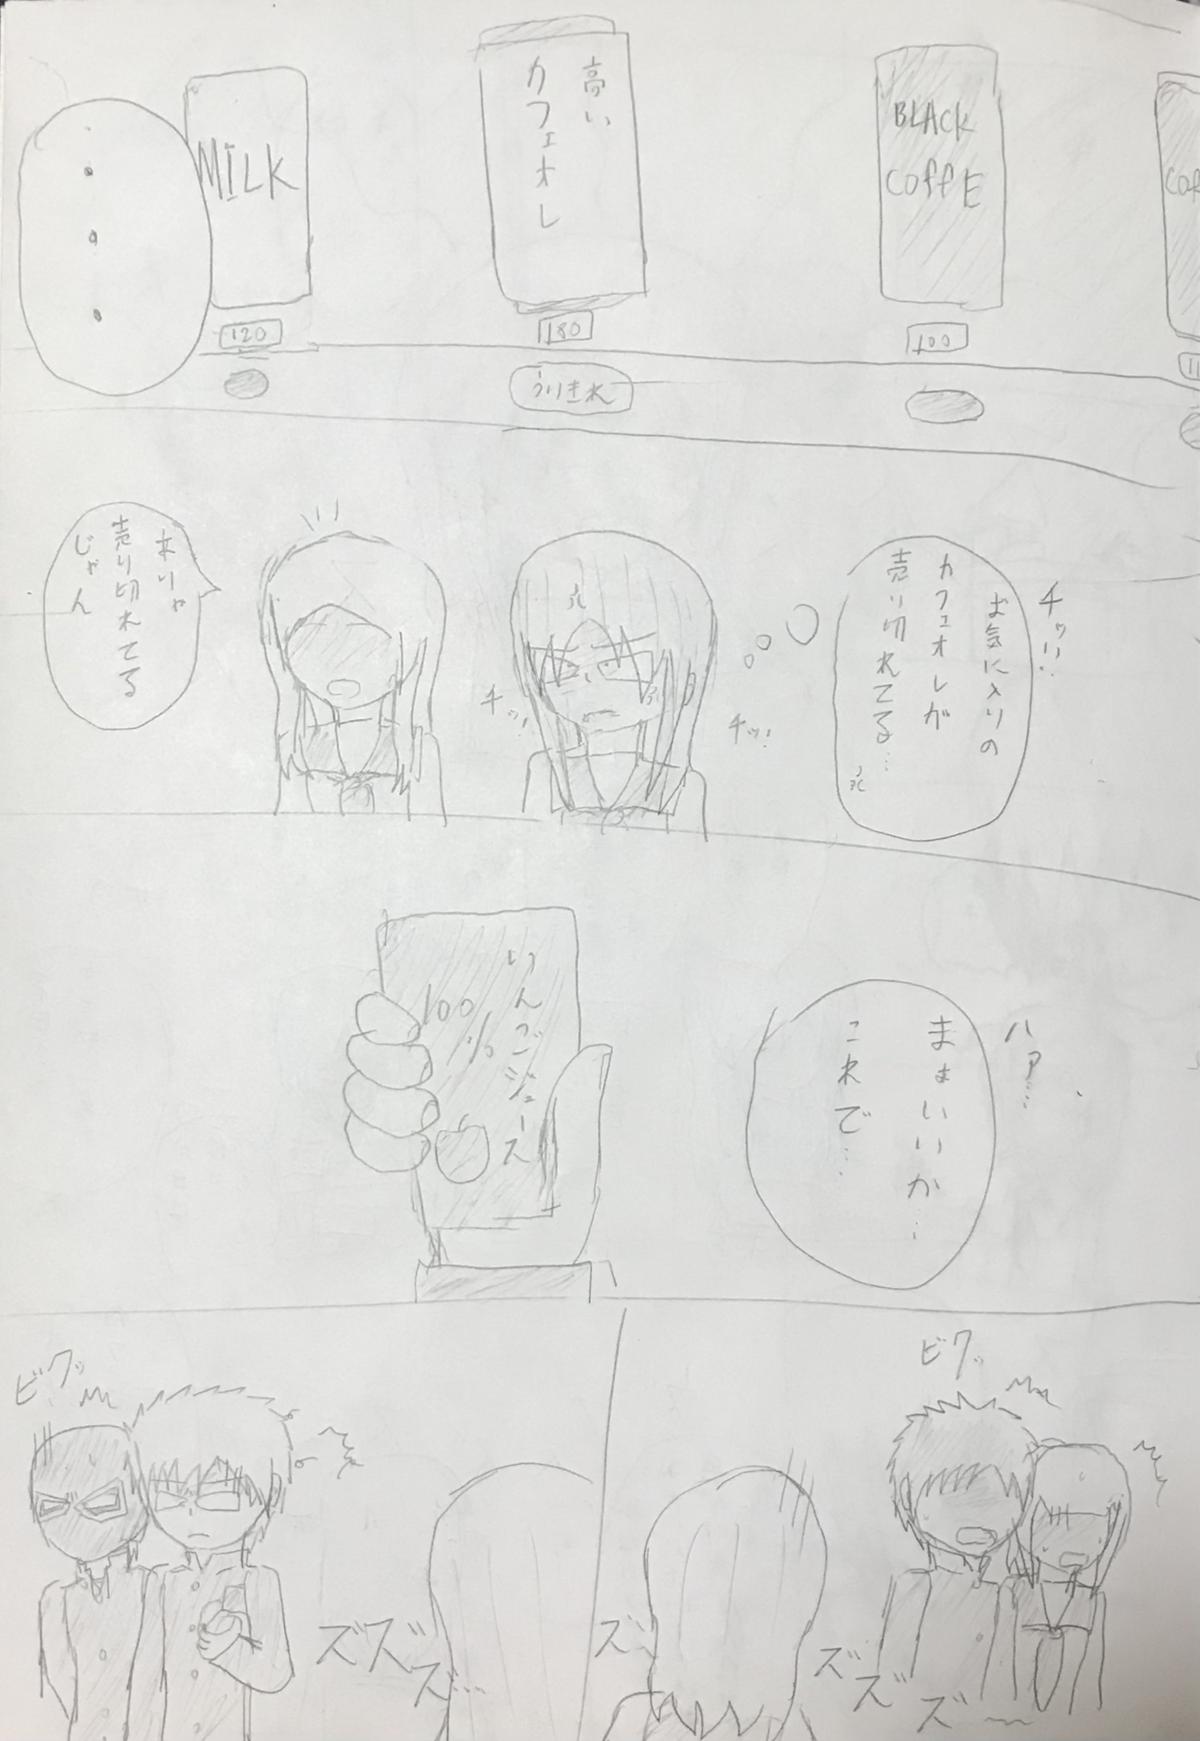 COF
BLACK
COFFE
100
高い
カフェオレ
180
うりきれ
MILK
120
・・・
チッ!!
お気に入りの
カフェオレが
売り切れてる…
チッ!
チッ!
ありゃ
売り切れてる
じゃん
ハァ…
まぁいいか…
これで…
りんごジュース
100
%
ビクッ
ズズズ〜
ズ…
ビクッ
ズズズ…